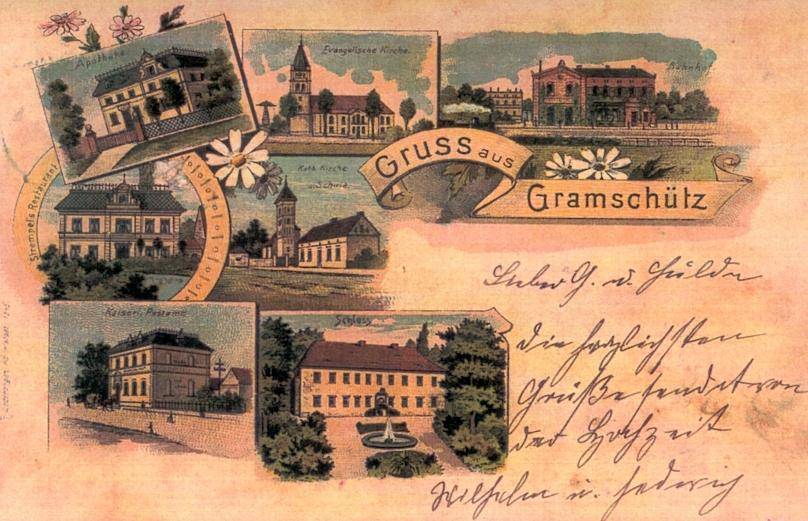 Apotheke
Evangelische Kirche.
Bahnhof
Gruss aus
Gramschütz
Strempel's Restaurant
Kath. Kirche
u. Schule
Kaiserl. Postamt
Schloss
Lieber G. u. Hulda
die herzlichsten
Grüße sendet von
der Hochzeit
Wilhelm u. Hedwig